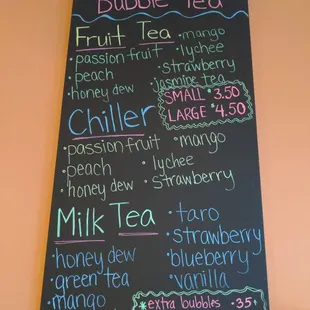 Bubble Tea
Fruit Tea
• mango
• passion fruit
• lychee
• peach
• strawberry
• honey dew
• jasmine tea
SMALL • 3.50
LARGE • 4.50
Chiller
• passion fruit
• mango
• peach
• lychee
• honey dew
• strawberry
Milk Tea
• taro
• strawberry
• honey dew
• blueberry
• green tea
• vanilla
• mango
*extra bubbles • 35¢